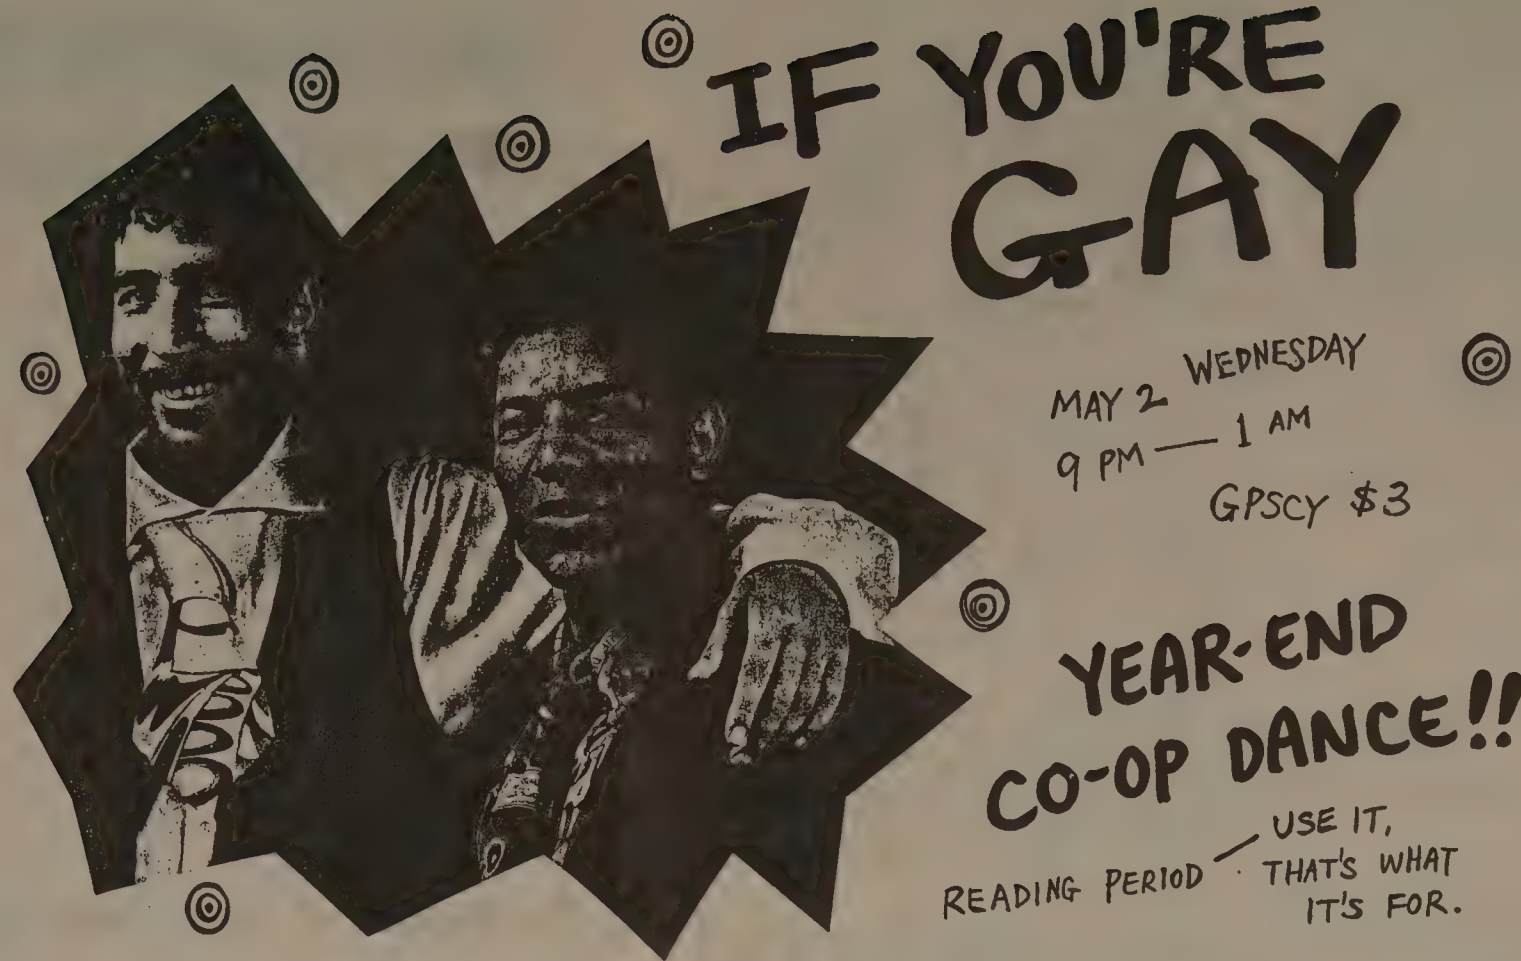 IF YOU'RE
GAY
MAY 2 WEDNESDAY
9 PM — 1 AM
GPSCY $3
YEAR-END
CO-OP DANCE!!
READING PERIOD — USE IT,
THAT'S WHAT
IT'S FOR.